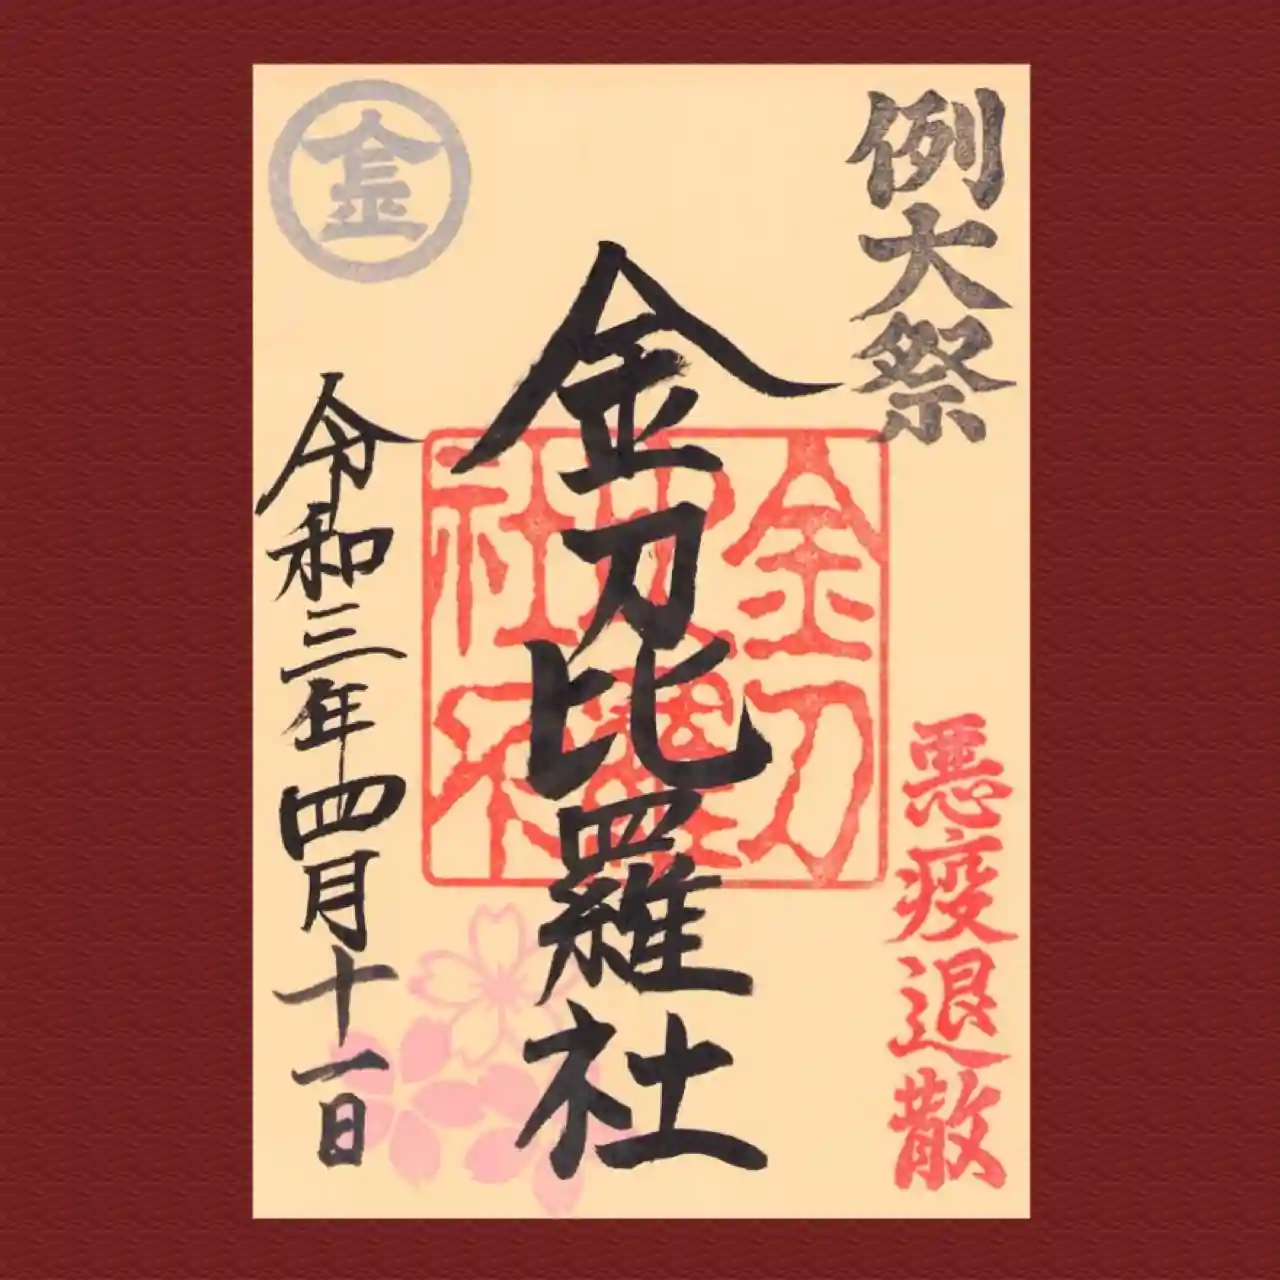 例大祭
悪疫退散
金刀比羅社
令和三年四月十一日
金
金刀
社